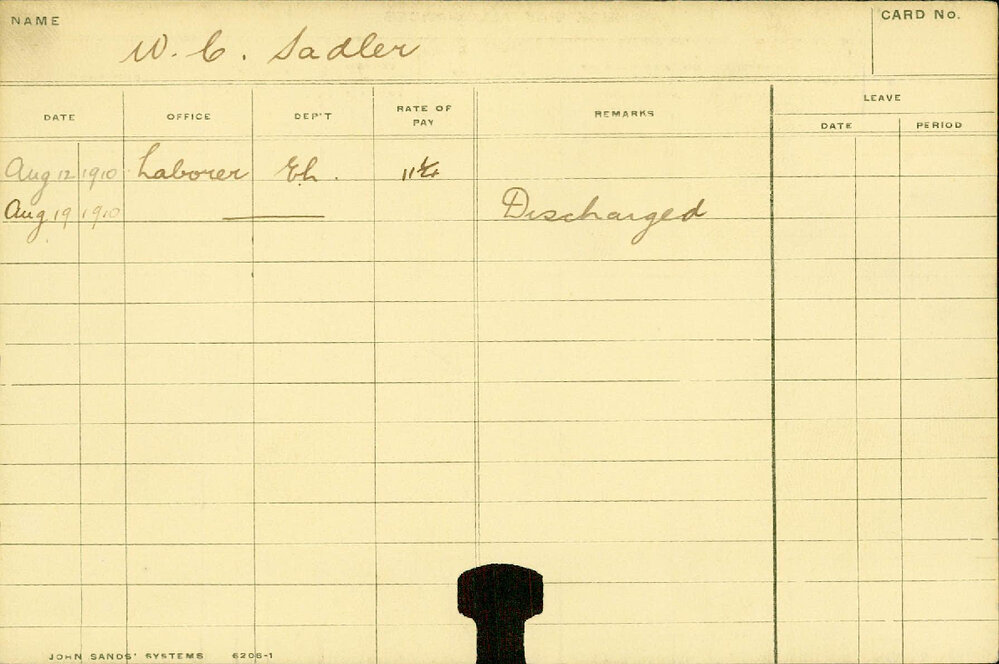 NAME
W. C. Sadler
CARD No.
DATE OFFICE DEP'T RATE OF PAY REMARKS LEAVE
DATE PERIOD
Aug 12 1910 Laborer Eh.
Aug 19 1910 Discharged
JOHN SANDS' SYSTEMS 6206-1